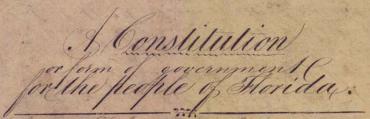 A Constitution
or form of government
for the people of Florida.